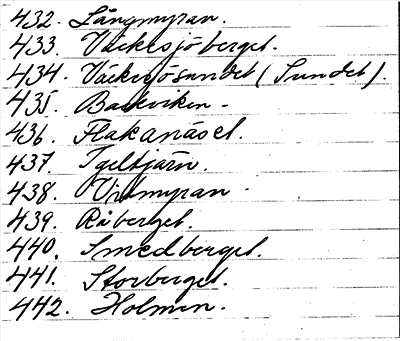 432. Långmyran.
433. Väckesjöberget.
434. Väckesjösundet (Sundet).
435. Backviken.
436. Flakanäset.
437. Igeltjärn.
438. Vramyran.
439. Råberget.
440. Smedberget.
441. Storberget.
442. Holmen.